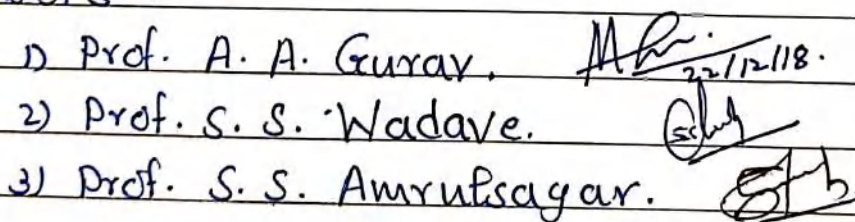 1) Prof. A. A. Gurav. 22/12/18.
2) Prof. S. S. Wadave.
3) Prof. S. S. Amrutsagar.